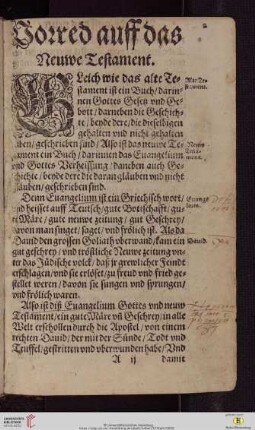 Vorred auff das
Neuwe Testament.
GLeich wie das alte Te-
stament ist ein Buch/ darin-
nen Gottes Gesetz vnd Ge-
bott/ darneben die Geschich-
te/ beyde dere/ die dieselbigen
gehalten vnd nicht gehalten
haben/ geschrieben sind/ Also ist das neuwe Te-
stament ein Buch/ darinnen das Euangelium
vnd Gottes Verheissung/ daneben auch Ge-
schichte/ beyde dere die daran glauben vnd nicht
glauben/ geschrieben sind.
Denn Euangelium ist ein Griechisch wort/
vnd heisset auff Teutsch/ gute Bottschafft/ gu-
te Märe/ gute neuwe zeitung/ gut Geschrey/
davon man singet/ saget/ vnd frölich ist. Als da
Dauid den grossen Goliath vberwand/ kam ein
gut geschrey/ vnd tröstliche Neuwe zeitung vn-
ter das Jüdische volck/ daß jr grewlicher Feindt
erschlagen/ vnd sie erlöset/ zu freud vnd fried ge-
stellet weren/ davon sie sungen vnd sprungen/
vnd frölich waren.
Also ist diß Euangelium Gottes vnd neuw
Testament/ ein gute Märe vñ Geschrey/ in alle
Welt erschollen durch die Apostel/ von einem
rechten Dauid/ der mit der Sünde/ Todt vnd
Teuffel/ gestritten vnd vberwunden habe/ Vnd
A ij damit
Dauid.